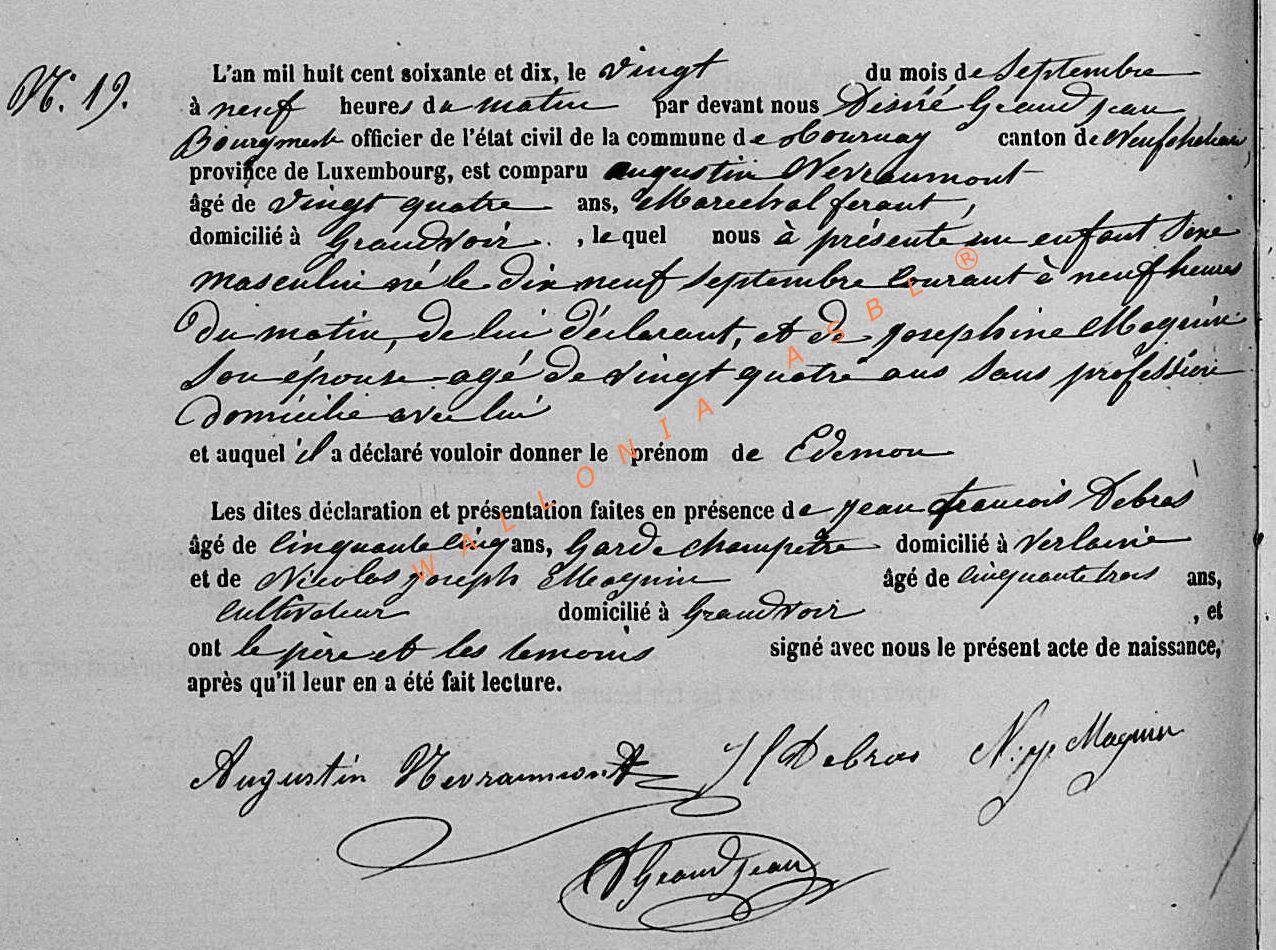 N.° 19.
L'an mil huit cent soixante et dix, le vingt du mois de Septembre
à neuf heures du matin par devant nous Désiré Grandjean
Bourgmestre officier de l'état civil de la commune de Tournay canton de Neufchateau,
province de Luxembourg, est comparu augustin Nevraumont
âgé de vingt quatre ans, Marechal ferant,
domicilié à Grandvoir , lequel nous à présenté un enfant Sexe
masculin né le dix neuf septembre courant à neuf heures
du matin, de lui déclarant, et de josephine Magnin
son épouse agé de vingt quatre ans Sans proféssion
domicilié avec lui
et auquel il a déclaré vouloir donner le prénom de Edemon
Les dites déclaration et présentation faites en présence de jean françois Debras
âgé de cinquante cinq ans, Garde champetre domicilié à Verlaine
et de Nicolas joseph Magnin âgé de cinquante trois ans,
cultivateur domicilié à Grandvoir , et
ont le père et les temoins signé avec nous le présent acte de naissance,
après qu'il leur en a été fait lecture.
Augustin Nevraumont Debras N. j. Magnin
D Grandjean
WALLONIA ASBL ®